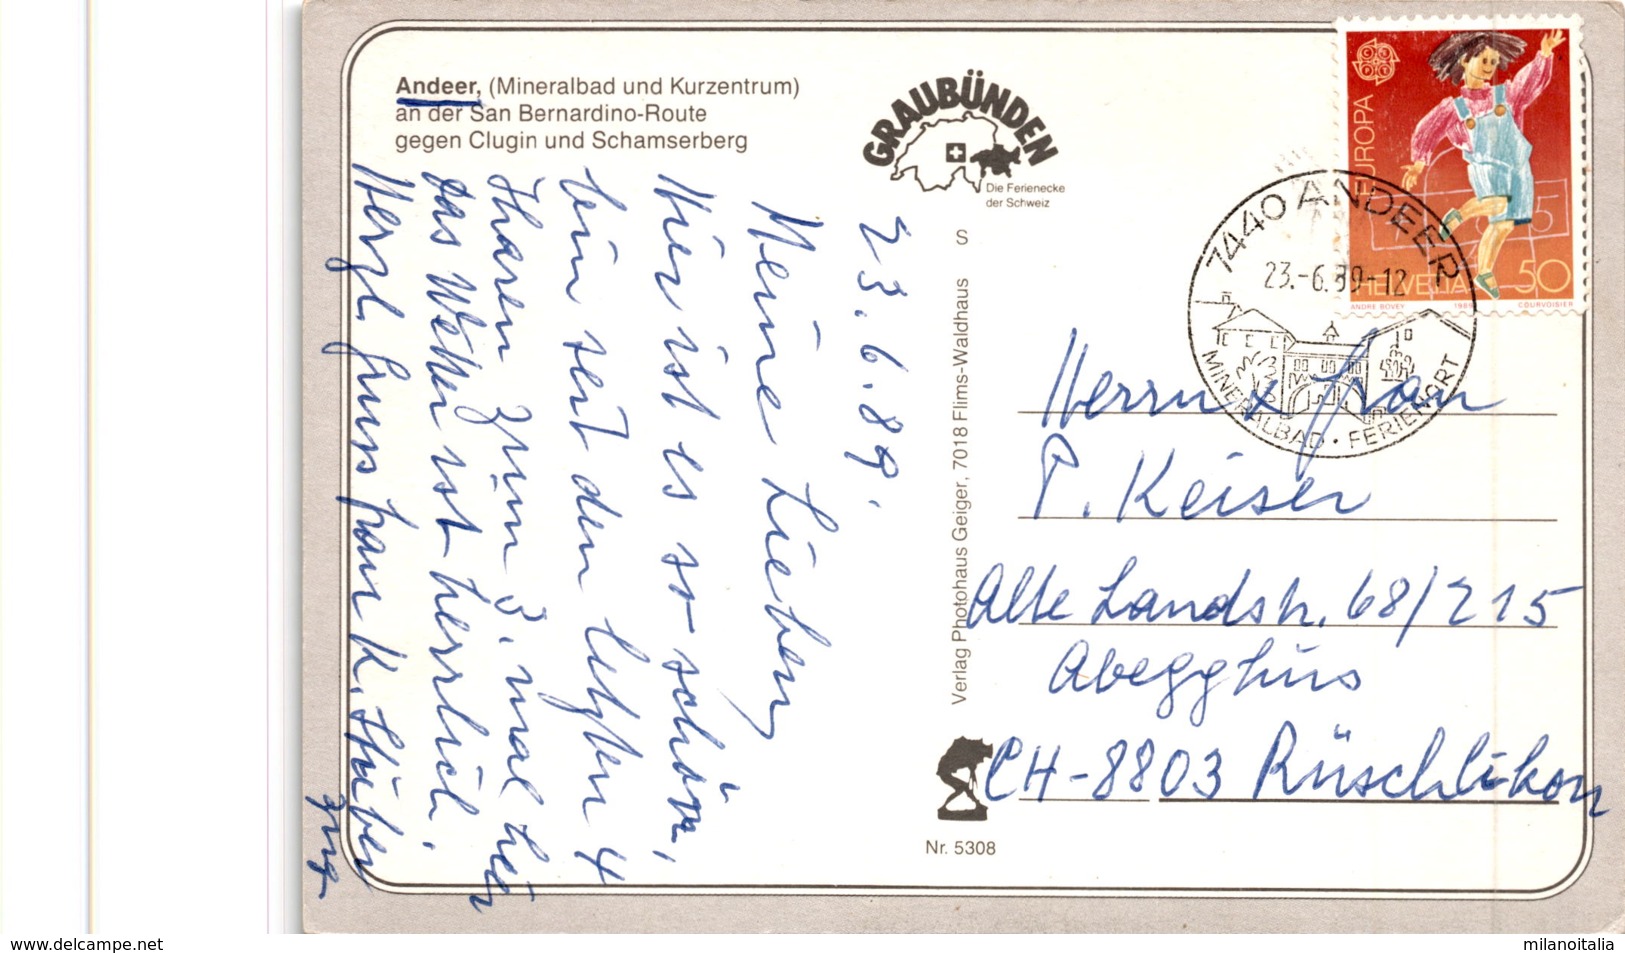 Andeer, (Mineralbad und Kurzentrum)
an der San Bernardino-Route
gegen Clugin und Schamserberg
GRAUBÜNDEN
Die Ferienecke
der Schweiz
S
Verlag Photohaus Geiger, 7018 Flims-Waldhaus
Nr. 5308
EUROPA
HELVETIA 50
ANDRÉ BOVEY 1989 COURVOISIER
7440 ANDEER
23.-6.89-12
MINERALBAD · FERIENORT
23.6.89.
Meine Lieben
Hier ist es so schön,
bin seit den letzten 4
Jharen zum 3. mal hier
das Wetter ist herrlich.
Herzl. Gruss Frau K. Stüber
Zug
Herrn & Frau
P. Keiser
Alte Landstr. 68/215
Abegghus
CH-8803 Rüschlikon
www.delcampe.net
milanoitalia